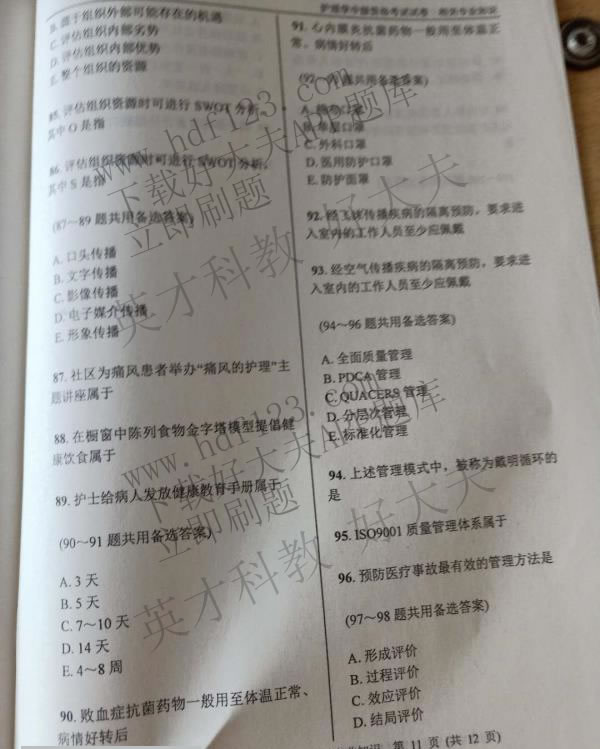 B. 组织外部可能存在的机遇
C. 评估组织内部劣势
D. 评估组织内部优势
E. 整个组织的资源
85. 评估组织资源时可进行 SWOT 分析，
其中 O 是指
86. 评估组织资源时可进行 SWOT 分析，
其中 S 是指
(87～89 题共用备选答案)
A. 口头传播
B. 文字传播
C. 影像传播
D. 电子媒介传播
E. 形象传播
87. 社区为痛风患者举办“痛风的护理”主
题讲座属于
88. 在橱窗中陈列食物金字塔模型提倡健
康饮食属于
89. 护士给病人发放健康教育手册属于
(90～91 题共用备选答案)
A. 3 天
B. 5 天
C. 7～10 天
D. 14 天
E. 4～8 周
90. 败血症抗菌药物一般用至体温正常、
病情好转后
护理学中级资格考试试卷 相关专业知识
91. 心内膜炎抗菌药物一般用至体温正
常、病情好转后
题共用备选答案)
口罩
口罩
C. 外科口罩
D. 医用防护口罩
E. 防护面罩
92. 经飞沫传播疾病的隔离预防，要求进
入室内的工作人员至少应佩戴
93. 经空气传播疾病的隔离预防，要求进
入室内的工作人员至少应佩戴
(94～96 题共用备选答案)
A. 全面质量管理
B. PDCA 管理
C. QUACERS 管理
D. 分层次管理
E. 标准化管理
94. 上述管理模式中，被称为戴明循环的
是
95. ISO9001 质量管理体系属于
96. 预防医疗事故最有效的管理方法是
(97～98 题共用备选答案)
A. 形成评价
B. 过程评价
C. 效应评价
D. 结局评价
第 11 页 (共 12 页)
www.hdf123.com
下载好大夫App题库
立即刷题
英才科教 好大夫
www.hdf123.com
下载好大夫App题库
立即刷题
英才科教 好大夫